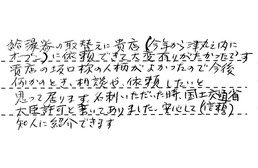 給湯器の取替えに貴店(今年から津九之内に
オープン)に依頼できて大変ありがたかったです
貴店の坂口様の人柄がよかったので今後
何かのとき、相談や、依頼したいと
思って居ります。名刺いただいた時、国土交通省
大臣許可と書いてありました。安心して(信頼)
知人に紹介できます